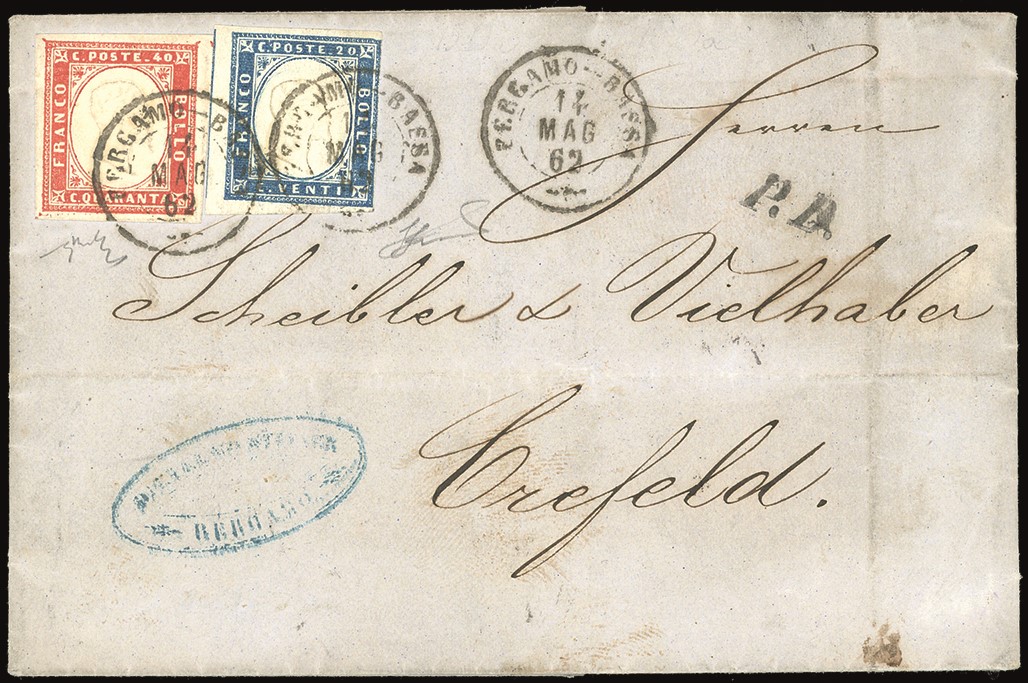 C. POSTE. 40
FRANCO
BOLLO
C. QUARANTA
C. POSTE. 20
FRANCO
BOLLO
C. VENTI
BERGAMO
MAG
62
BERGAMO-BASSA
MAG
62
BERGAMO-BASSA
14
MAG
62
P.D.
Herren
Scheibler & Vielhaber
Crefeld.
BERGAMO